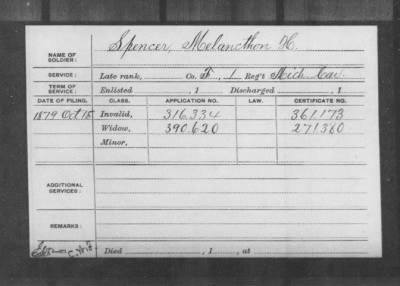 NAME OF SOLDIER: Spencer, Melancthon H.
SERVICE: Late rank, Co. F, 1 Reg't Mich Cav.
TERM OF SERVICE: Enlisted , 1 Discharged , 1
DATE OF FILING. CLASS. APPLICATION NO. LAW. CERTIFICATE NO.
1879 Oct 18 Invalid, 316.334 361.173
Widow, 390.620 271380
Minor,
ADDITIONAL SERVICES:
REMARKS:
Died , 1 , at